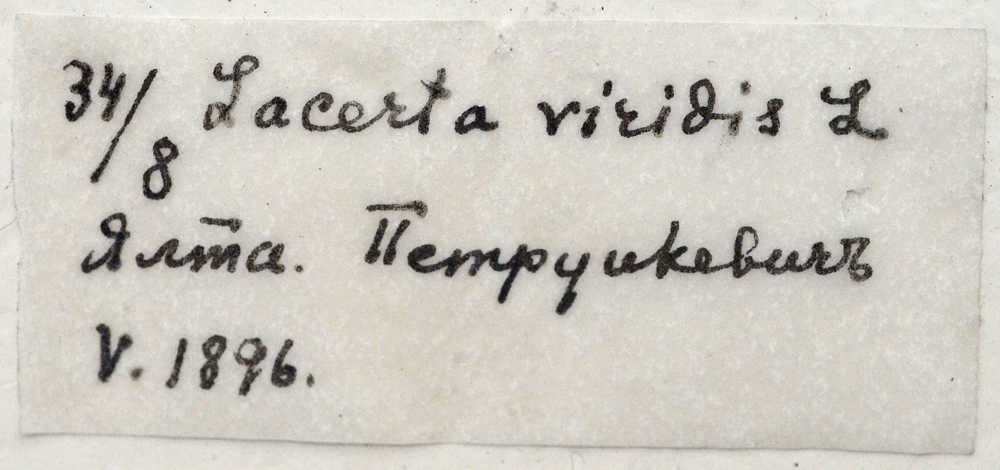 34/8 Lacerta viridis L
Ялта. Петрункевичъ
V. 1896.